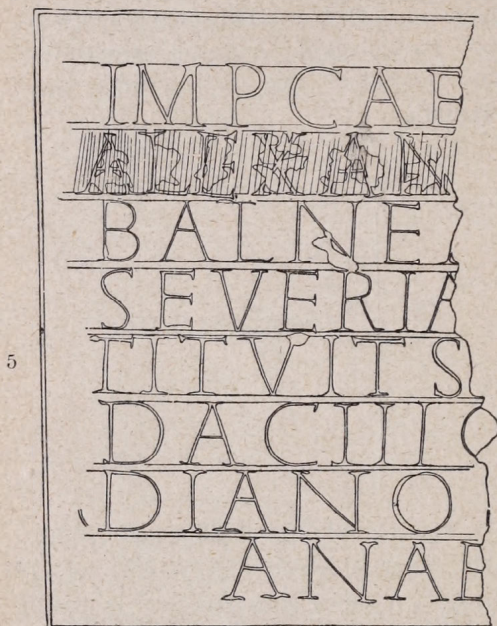 IMP CAE
ALEXAN
BALNE
SEVERIA
5 TITVIT S
DAC III C
DIANO
ANAE